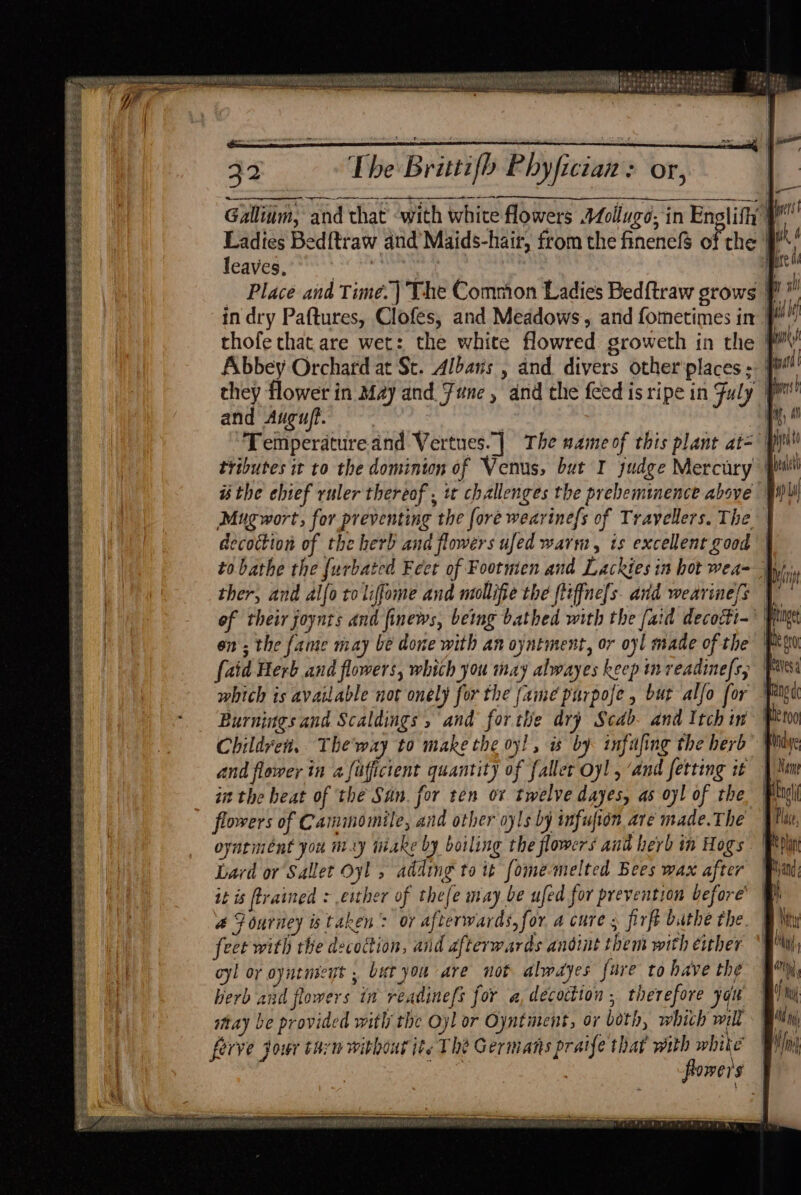 32 The Brittiſh Phyſician: or,
Gallium, and that with white flowers Mollugo, in Engliſh
Ladies Bedſtraw and Maids-hair, from the fineneſs of the
leaves.
Place and Time.] The Common Ladies Bedſtraw grows
in dry Paſtures, Cloſes, and Meadows, and ſometimes in
thoſe that are wet: the white flowred groweth in the
Abbey Orchard at St. Albans, and divers other places;
they flower in May and June, and the ſeed is ripe in July
and Auguſt.
Temperature and Vertues.] The name of this plant at-
tributes it to the dominion of Venus, but I judge Mercury
is the chief ruler thereof, it challenges the preheminence above
Mugwort, for preventing the ſore wearineſs of Travellers. The
decoction of the herb and flowers uſed warm, is excellent good
to bathe the ſurbated Feet of Footmen and Lackies in hot wea-
ther, and alſo to liſſome and mollifie the ſtiffneſs and wearineſs
of their joynts and ſinews, being bathed with the ſaid decocti-
on; the ſame may be done with an oyntment, or oyl made of the
ſaid Herb and flowers, which you may alwayes keep in readineſs,
which is available not onely for the ſame purpoſe, but alſo for
Burnings and Scaldings, and for the dry Scab and Itch in
Children. The way to make the oyl, is by infuſing the herb
and flower in a ſufficient quantity of ſallet Oyl, and ſetting it
in the heat of the Sun for ten or twelve dayes, as oyl of the
flowers of Cammomile, and other oyls by infuſion are made. The
oyntment you may make by boiling the flowers and herb in Hogs
Lard or Sallet Oyl, adding to it ſome melted Bees wax after
it is ſtrained: either of theſe may be uſed for prevention before
a Journey is taken: or afterwards, for a cure; firſt bathe the
feet with the decoction, and afterwards anoint them with either
oyl or oyntment; but you are not alwayes ſure to have the
herb and flowers in readineſs for a decoction; therefore you
may be provided with the Oyl or Oyntment, or both, which will
ſerve your turn without it. The Germans praiſe that with white
flowers